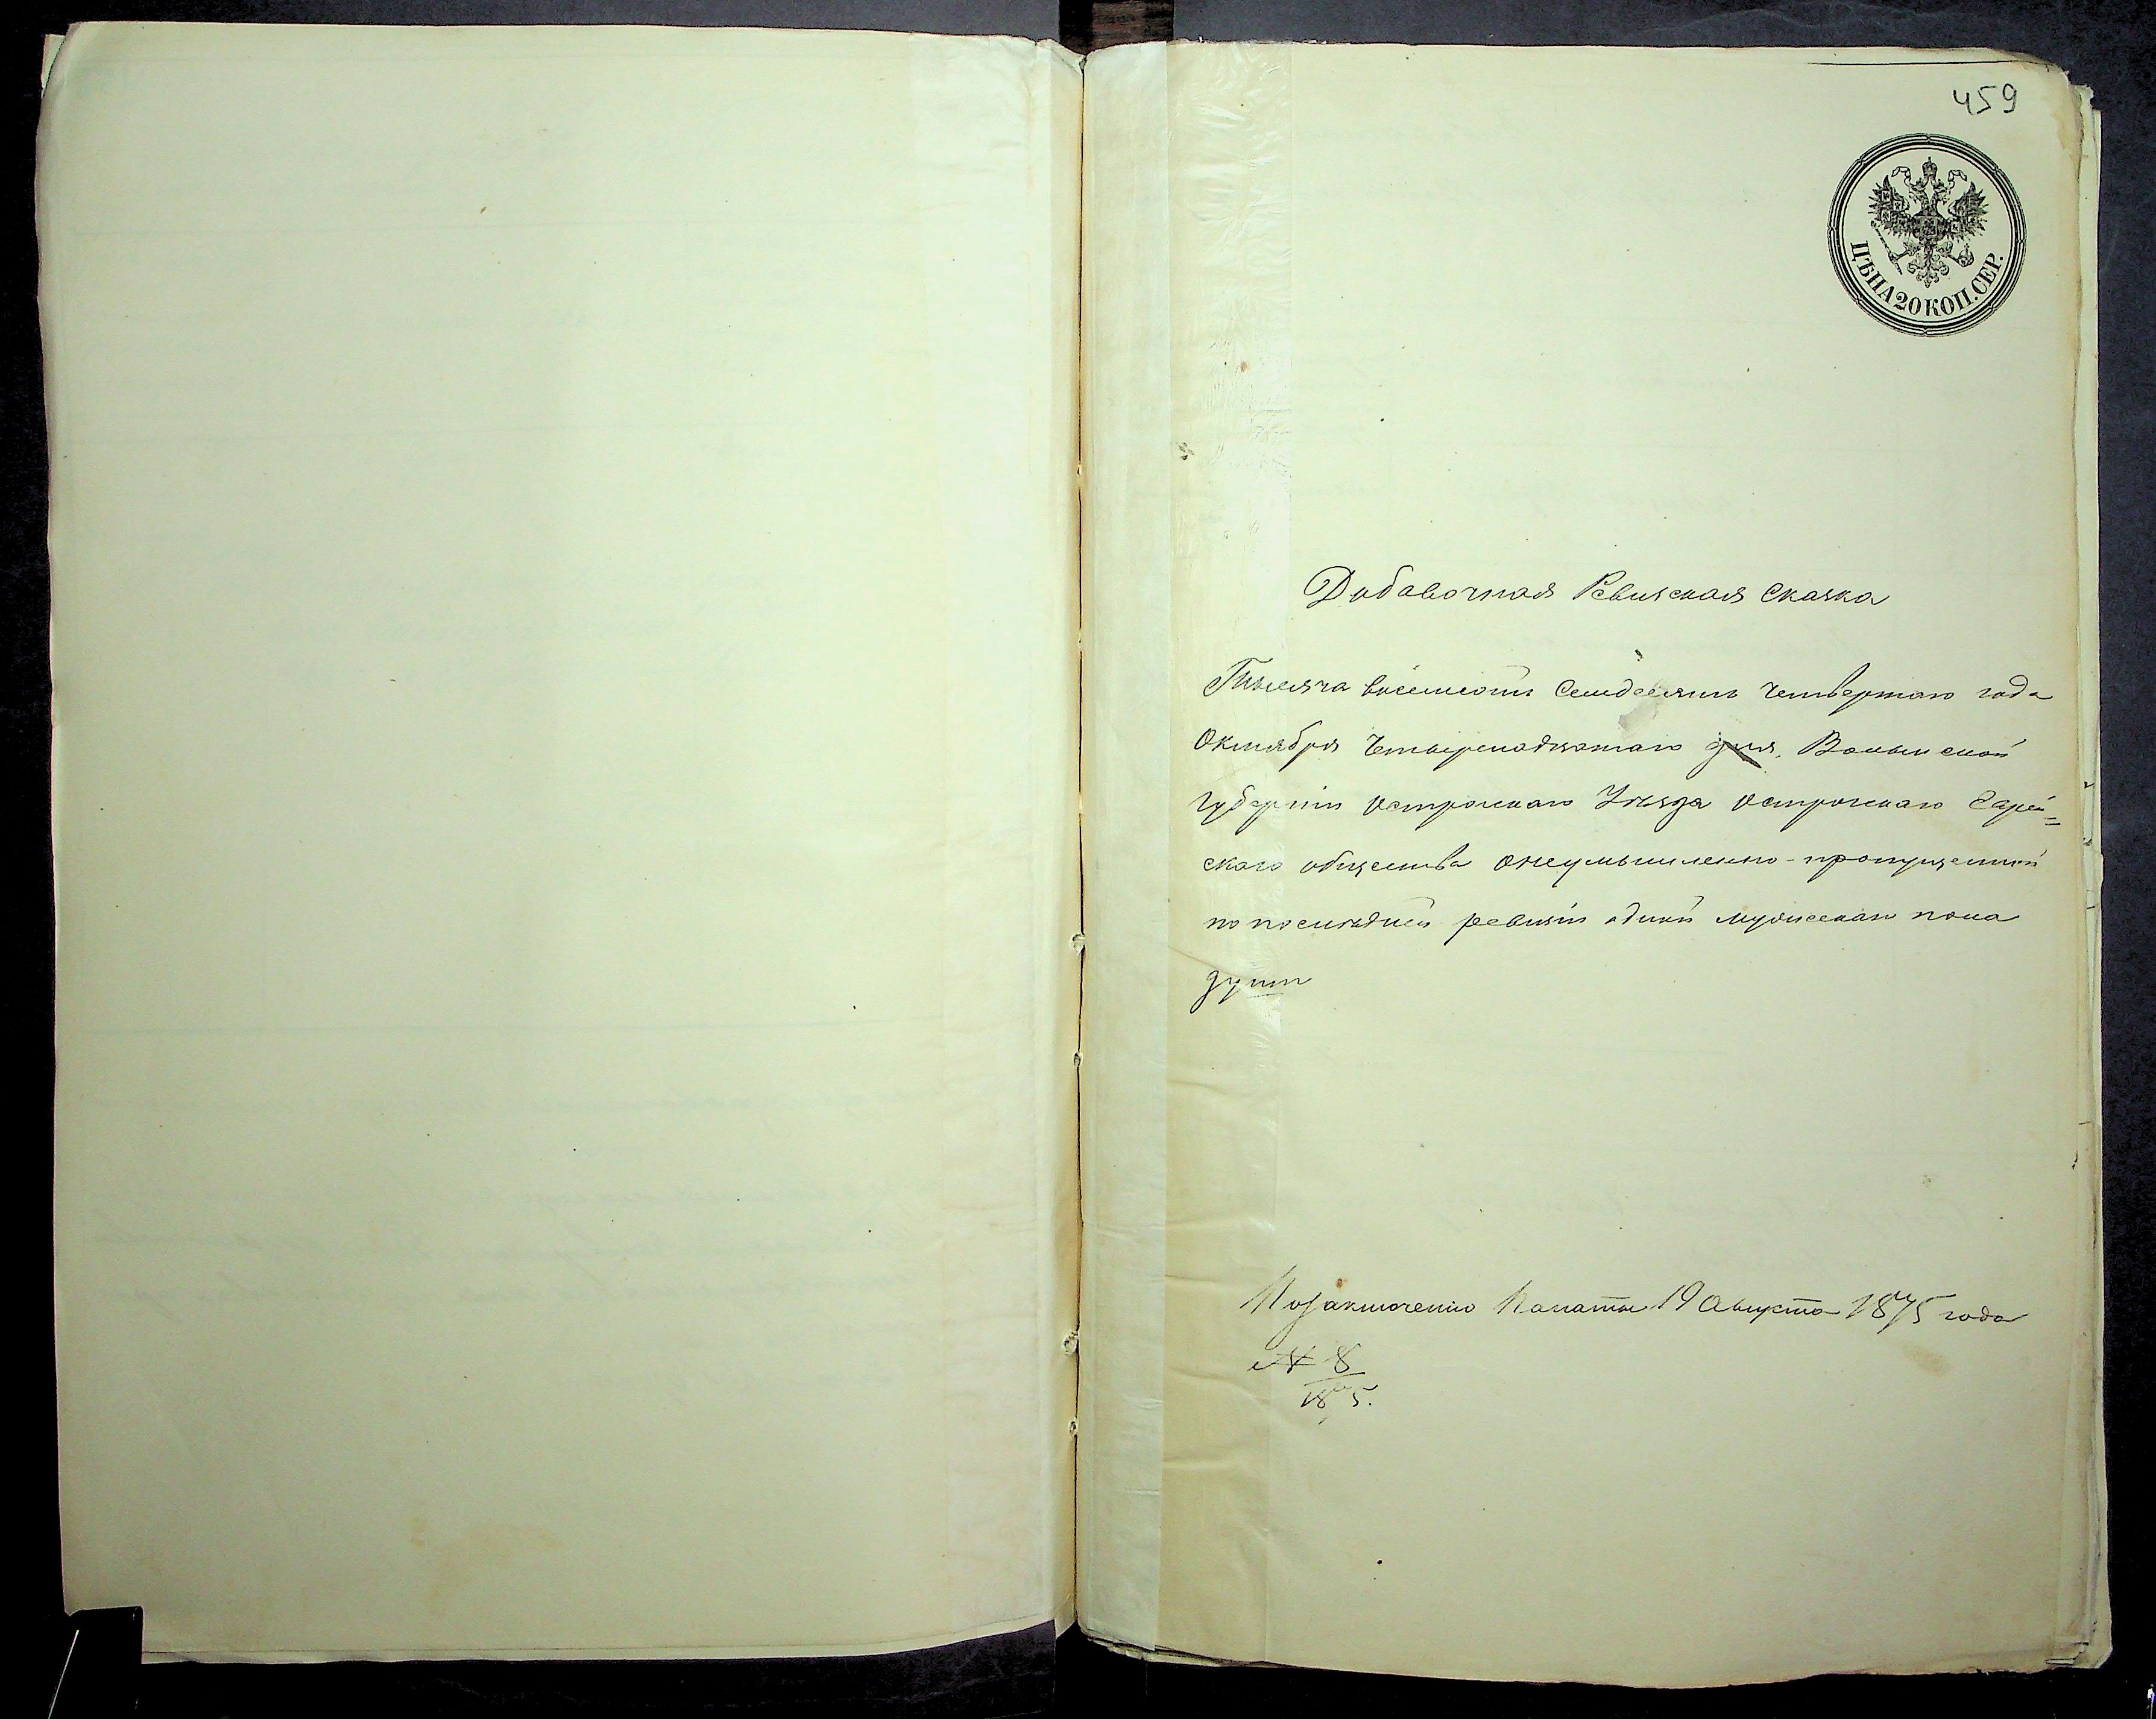 459
ЦѢНА 20 КОП. СЕР.
Добавочная Ревизская Сказка
Тысяча восемсотъ Семдесятъ Четвертаго года
Октября Четырнадцатаго дня, Волынской
Губерніи Острожскаго Уѣзда Острожскаго Еврей=
скаго общества о неумышленно-пропущенной
по послѣдней ревизіи одной мужескаго пола
души
По заключенію Палаты 19 Августа 1875 года
№ 8
1875.